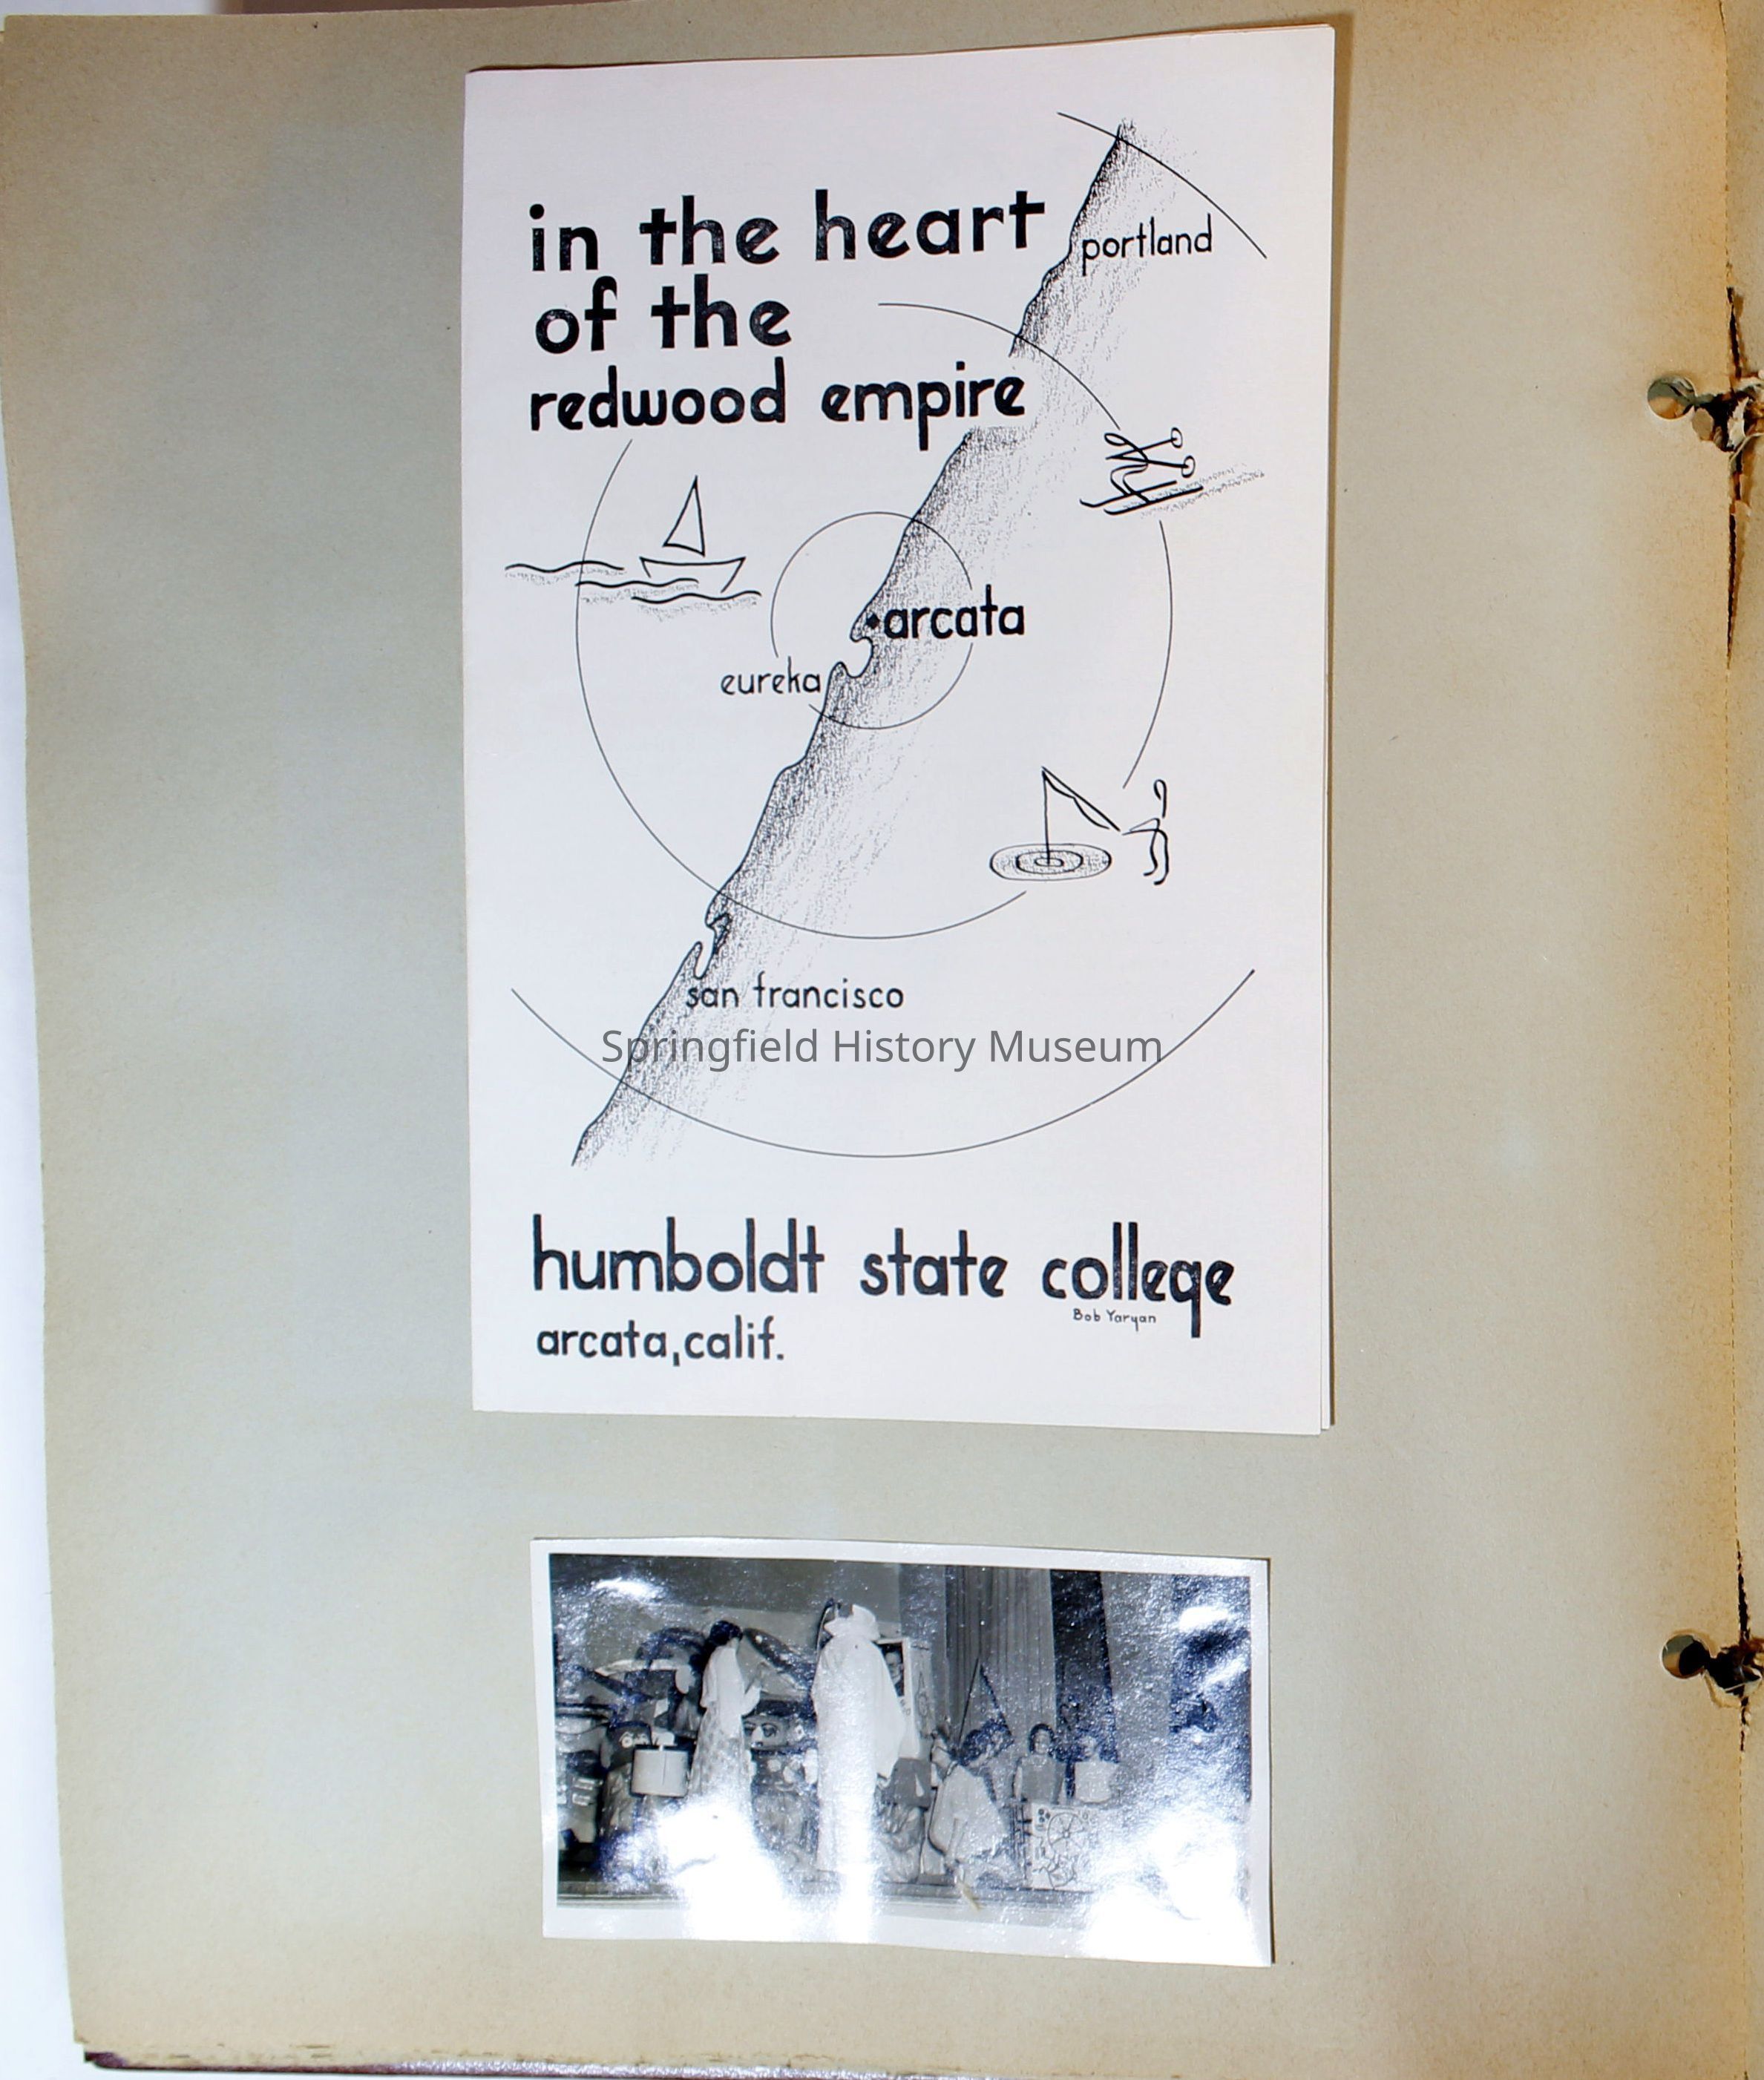 in the heart
of the
redwood empire
portland
arcata
eureka
san francisco
Springfield History Museum
humboldt state college
Bob Yaryan
arcata, calif.